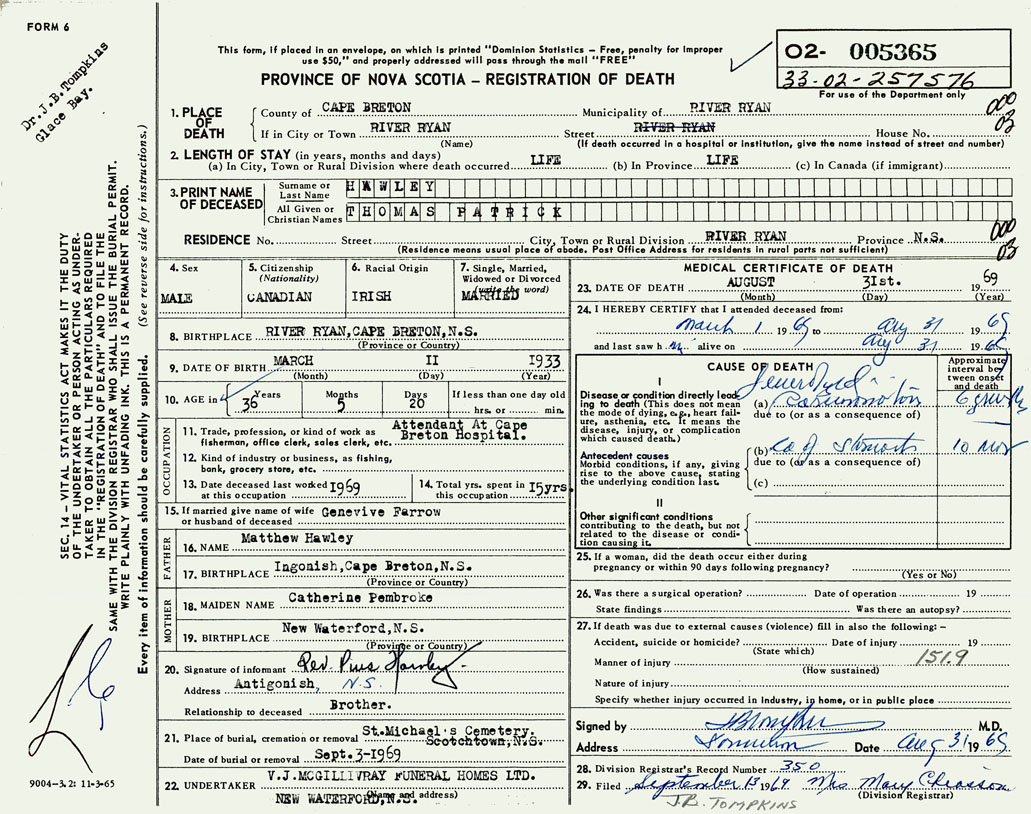 FORM 6
Dr. J.B. Tompkins
Glace Bay.
This form, if placed in an envelope, on which is printed "Dominion Statistics – Free, penalty for improper
use $50," and properly addressed will pass through the mail "FREE"
PROVINCE OF NOVA SCOTIA – REGISTRATION OF DEATH
02- 005365
33-02-257576
For use of the Department only
1. PLACE OF DEATH
County of CAPE BRETON Municipality of RIVER RYAN
000
03
If in City or Town RIVER RYAN Street RIVER RYAN House No.
(Name) (If death occurred in a hospital or institution, give the name instead of street and number)
2. LENGTH OF STAY (in years, months and days)
(a) In City, Town or Rural Division where death occurred LIFE (b) In Province LIFE (c) In Canada (if immigrant)
3. PRINT NAME OF DECEASED
Surname or Last Name HAWLEY
All Given or Christian Names THOMAS PATRICK
RESIDENCE No. Street City, Town or Rural Division RIVER RYAN Province N.S.
000
03
(Residence means usual place of abode. Post Office Address for residents in rural parts not sufficient)
4. Sex
MALE
5. Citizenship
(Nationality)
CANADIAN
6. Racial Origin
IRISH
7. Single, Married,
Widowed or Divorced
(write the word)
MARRIED
8. BIRTHPLACE RIVER RYAN, CAPE BRETON, N.S.
(Province or Country)
9. DATE OF BIRTH MARCH 11 1933
(Month) (Day) (Year)
10. AGE in Years Months Days If less than one day old
36 5 20 hrs. or min.
OCCUPATION
11. Trade, profession, or kind of work as
fisherman, office clerk, sales clerk, etc.
Attendant At Cape
Breton Hospital.
12. Kind of industry or business, as fishing,
bank, grocery store, etc.
13. Date deceased last worked
at this occupation 1969
14. Total yrs. spent in
this occupation 15yrs.
15. If married give name of wife
or husband of deceased Genevive Farrow
FATHER
16. NAME Matthew Hawley
17. BIRTHPLACE Ingonish, Cape Breton, N.S.
(Province or Country)
MOTHER
18. MAIDEN NAME Catherine Pembroke
19. BIRTHPLACE New Waterford, N.S.
(Province or Country)
20. Signature of informant Rev. Pius Hawley
Address Antigonish, N.S.
Relationship to deceased Brother.
21. Place of burial, cremation or removal St. Michael's Cemetery.
Scotchtown, N.S.
Date of burial or removal Sept. 3-1969
22. UNDERTAKER V.J. MCGILLIVRAY FUNERAL HOMES LTD.
NEW WATERFORD, N.S.
(Name and address)
MEDICAL CERTIFICATE OF DEATH
23. DATE OF DEATH AUGUST 31st. 1969
(Month) (Day) (Year)
24. I HEREBY CERTIFY that I attended deceased from:
March 1 1969 to Aug 31 1969
and last saw him alive on Aug 31 1969
CAUSE OF DEATH
Approximate
interval be-
tween onset
and death
I
Disease or condition directly lead-
ing to death (This does not mean
the mode of dying, e.g., heart fail-
ure, asthenia, etc. It means the
disease, injury, or complication
which caused death.)
(a)
due to (or as a consequence of)
Antecedent causes
Morbid conditions, if any, giving
rise to the above cause, stating
the underlying condition last.
(b) Ca of Stomach 10 mos
due to (or as a consequence of)
(c)
II
Other significant conditions
contributing to the death, but not
related to the disease or condi-
tion causing it.
25. If a woman, did the death occur either during
pregnancy or within 90 days following pregnancy?
(Yes or No)
26. Was there a surgical operation? Date of operation 19
State findings Was there an autopsy?
27. If death was due to external causes (violence) fill in also the following: –
Accident, suicide or homicide? Date of injury 19
(State which)
Manner of injury 151.9
(How sustained)
Nature of injury
Specify whether injury occurred in industry, in home, or in public place
Signed by M.D.
Address Dominion Date Aug 31 1969
28. Division Registrar's Record Number 350
29. Filed September 13 1969 Mrs Mary Chiasson
(Division Registrar)
J.B. TOMPKINS
SEC. 14 – VITAL STATISTICS ACT MAKES IT THE DUTY
OF THE UNDERTAKER OR PERSON ACTING AS UNDER-
TAKER TO OBTAIN ALL THE PARTICULARS REQUIRED
IN THE "REGISTRATION OF DEATH" AND TO FILE THE
SAME WITH THE DIVISION REGISTRAR WHO SHALL ISSUE THE BURIAL PERMIT.
WRITE PLAINLY WITH UNFADING INK. THIS IS A PERMANENT RECORD.
Every item of information should be carefully supplied. (See reverse side for instructions.)
9004-3.2: 11-3-65